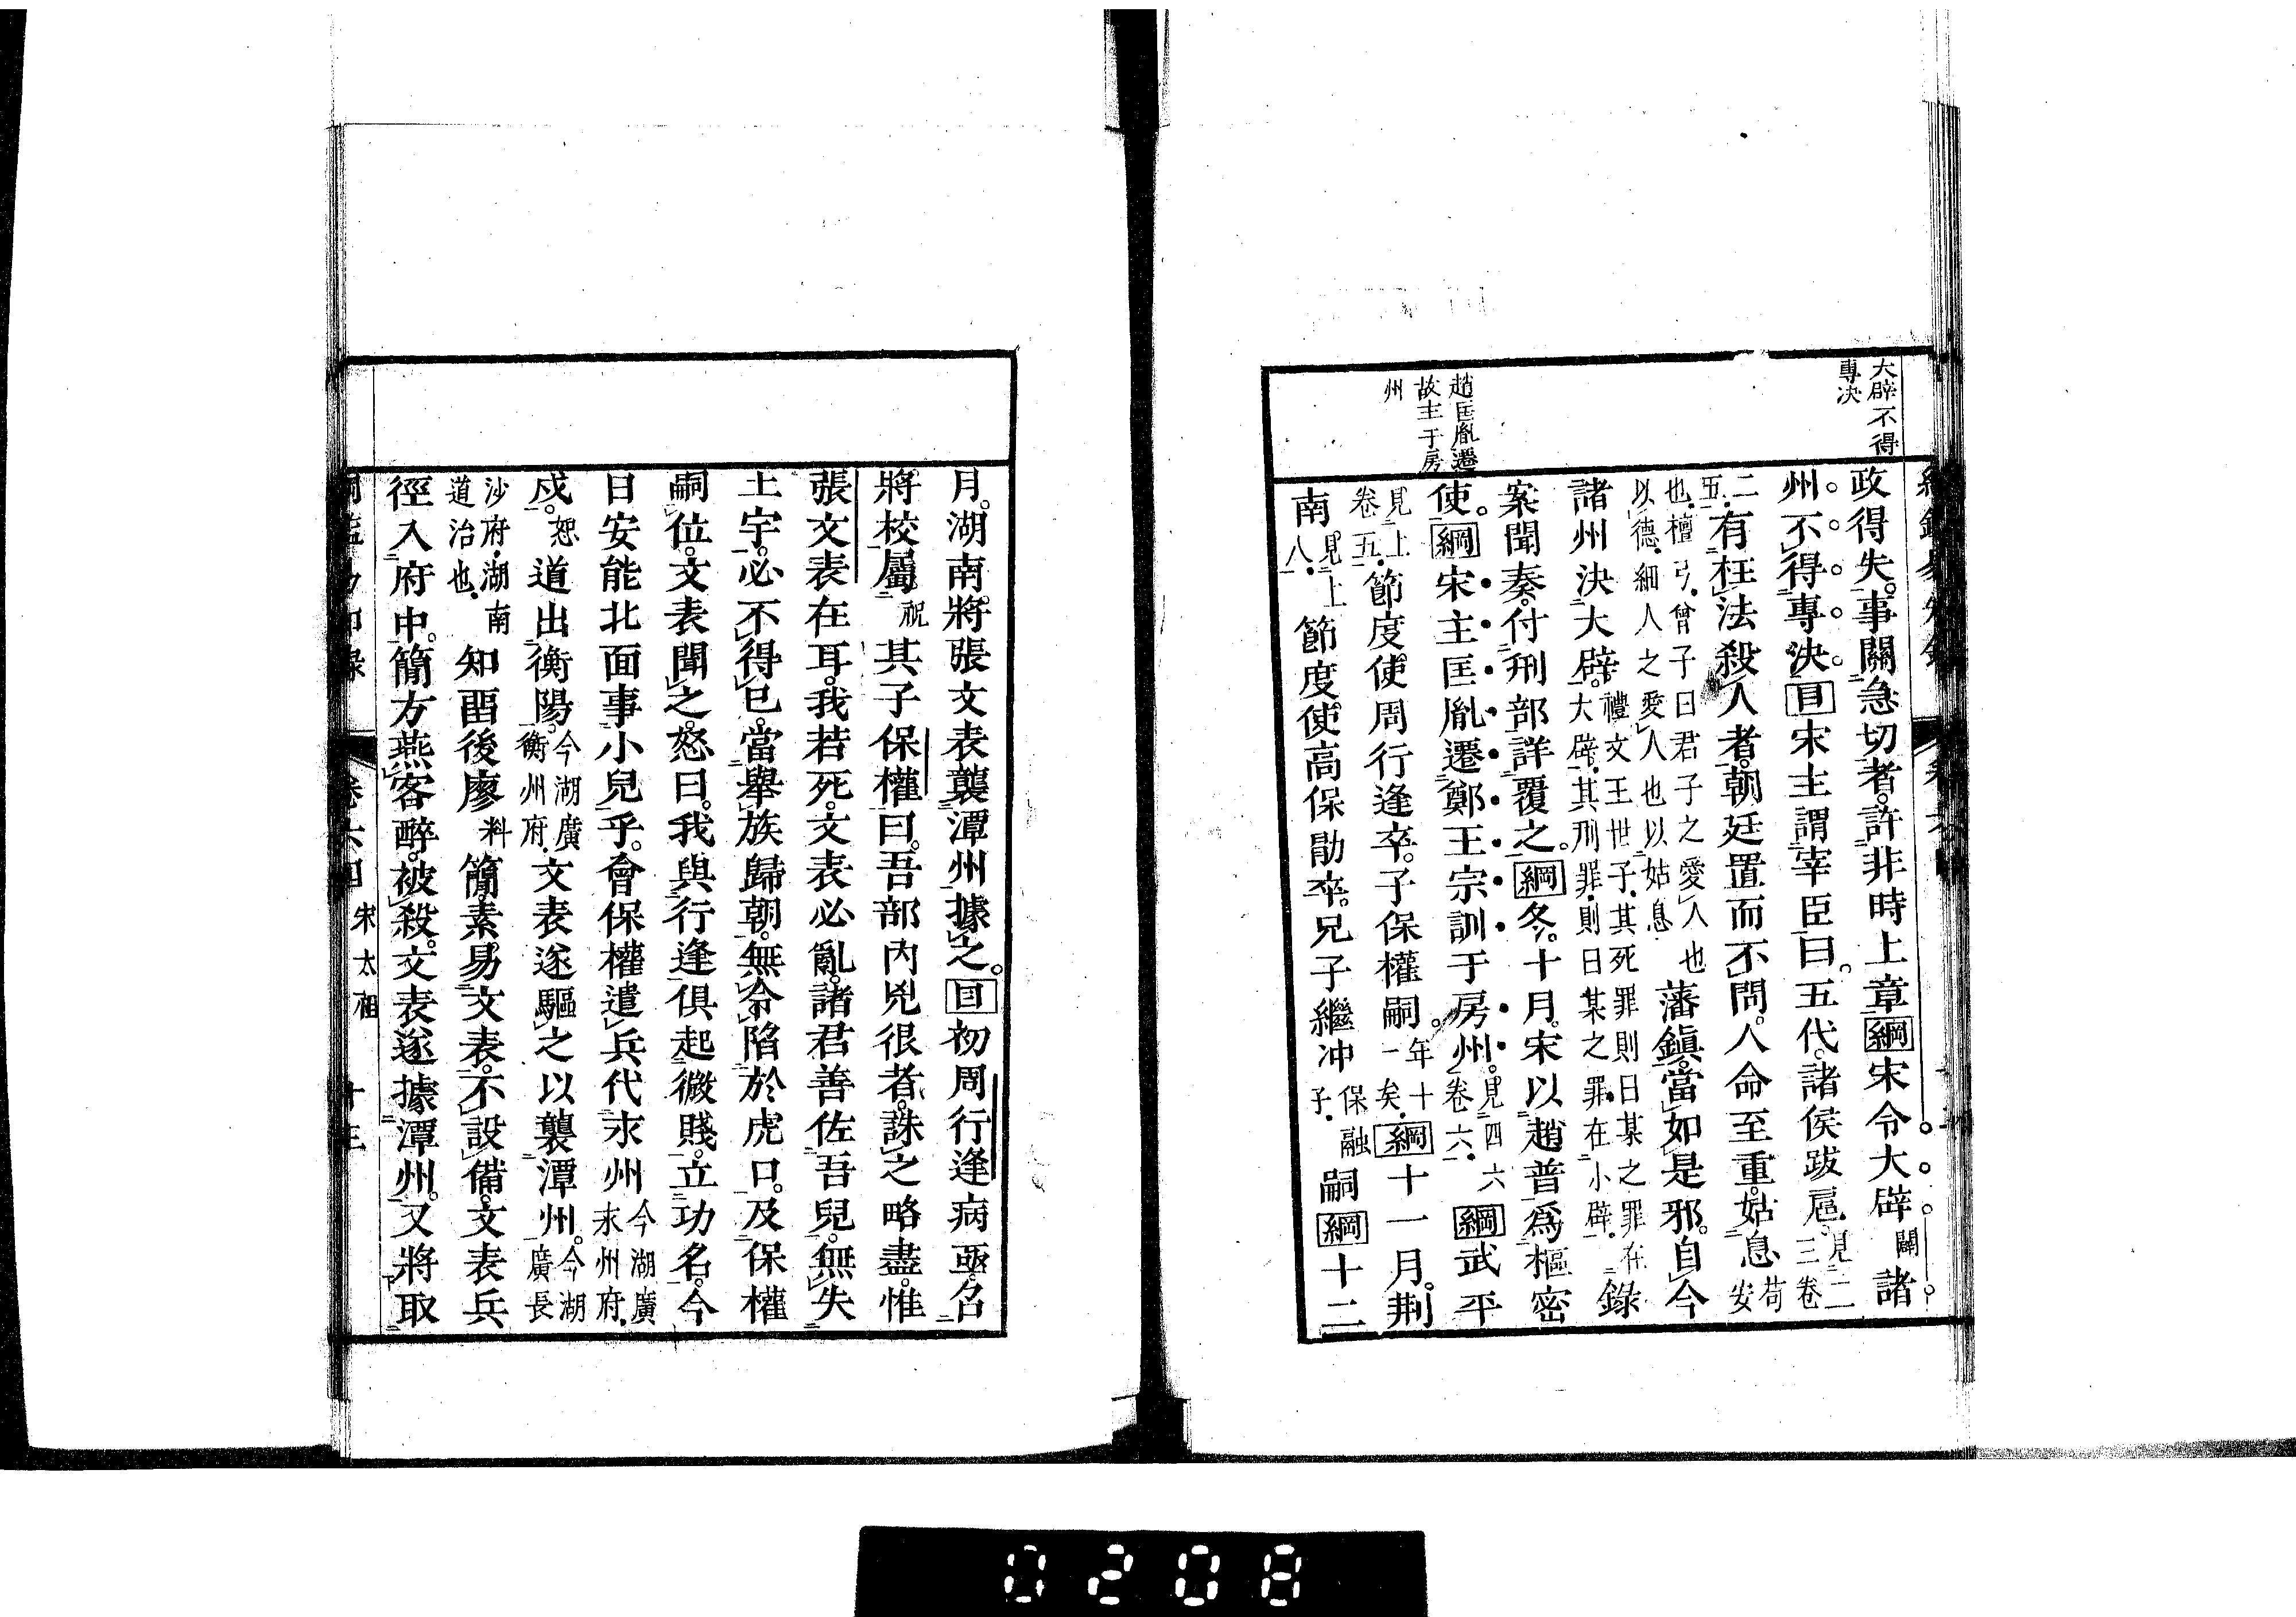 大辟不得
專决
趙匡胤遷
故主于房
州
政得失。事關急切者。許非時上章綱宋令大辟闢諸
州。不得專决。目宋主謂宰臣曰。五代。諸侯跋扈。見二三卷
二五。有枉法殺人者。朝廷置而不問。人命至重。姑息苟安
也。檀弓。曾子曰君子之愛人也
以德。細人之愛人也以姑息
藩鎭。當如是邪。自今
諸州決大辟。禮文王世子。其死罪則曰某之罪在
大辟。其刑罪。則曰某之罪在小辟。錄
案聞奏。付刑部詳覆之。綱冬。十月。宋以趙普爲樞密
使。綱宋主匡胤遷鄭王宗訓于房州。見四六卷六。綱武平
見上卷五。節度使周行逢卒。子保權嗣。年十一矣。綱十一月。荆
南。見上八。節度使高保勛卒。兄子繼冲保融子。嗣綱十二
月。湖南將張文表襲潭州據之。目初周行逢病亟。召
將校屬祝其子保權曰。吾部內兇很者。誅之略盡。惟
張文表在耳。我若死。文表必亂。諸君善佐吾兒。無失
土宇。必不得已。當舉族歸朝。無令陷於虎口。及保權
嗣位。文表聞之。怒曰。我與行逢俱起微賤。立功名。今
日安能北面事小兒乎。會保權遣兵代永州今湖廣永州府。
戍。恕道出衡陽。今湖廣衡州府。文表遂驅之以襲潭州。今湖廣長
沙府。湖南道治也。知畱後廖料簡。素易文表。不設備。文表兵
徑入府中。簡方燕客醉。被殺。文表遂據潭州。又將取
卷六四 宋太祖 十三
0208